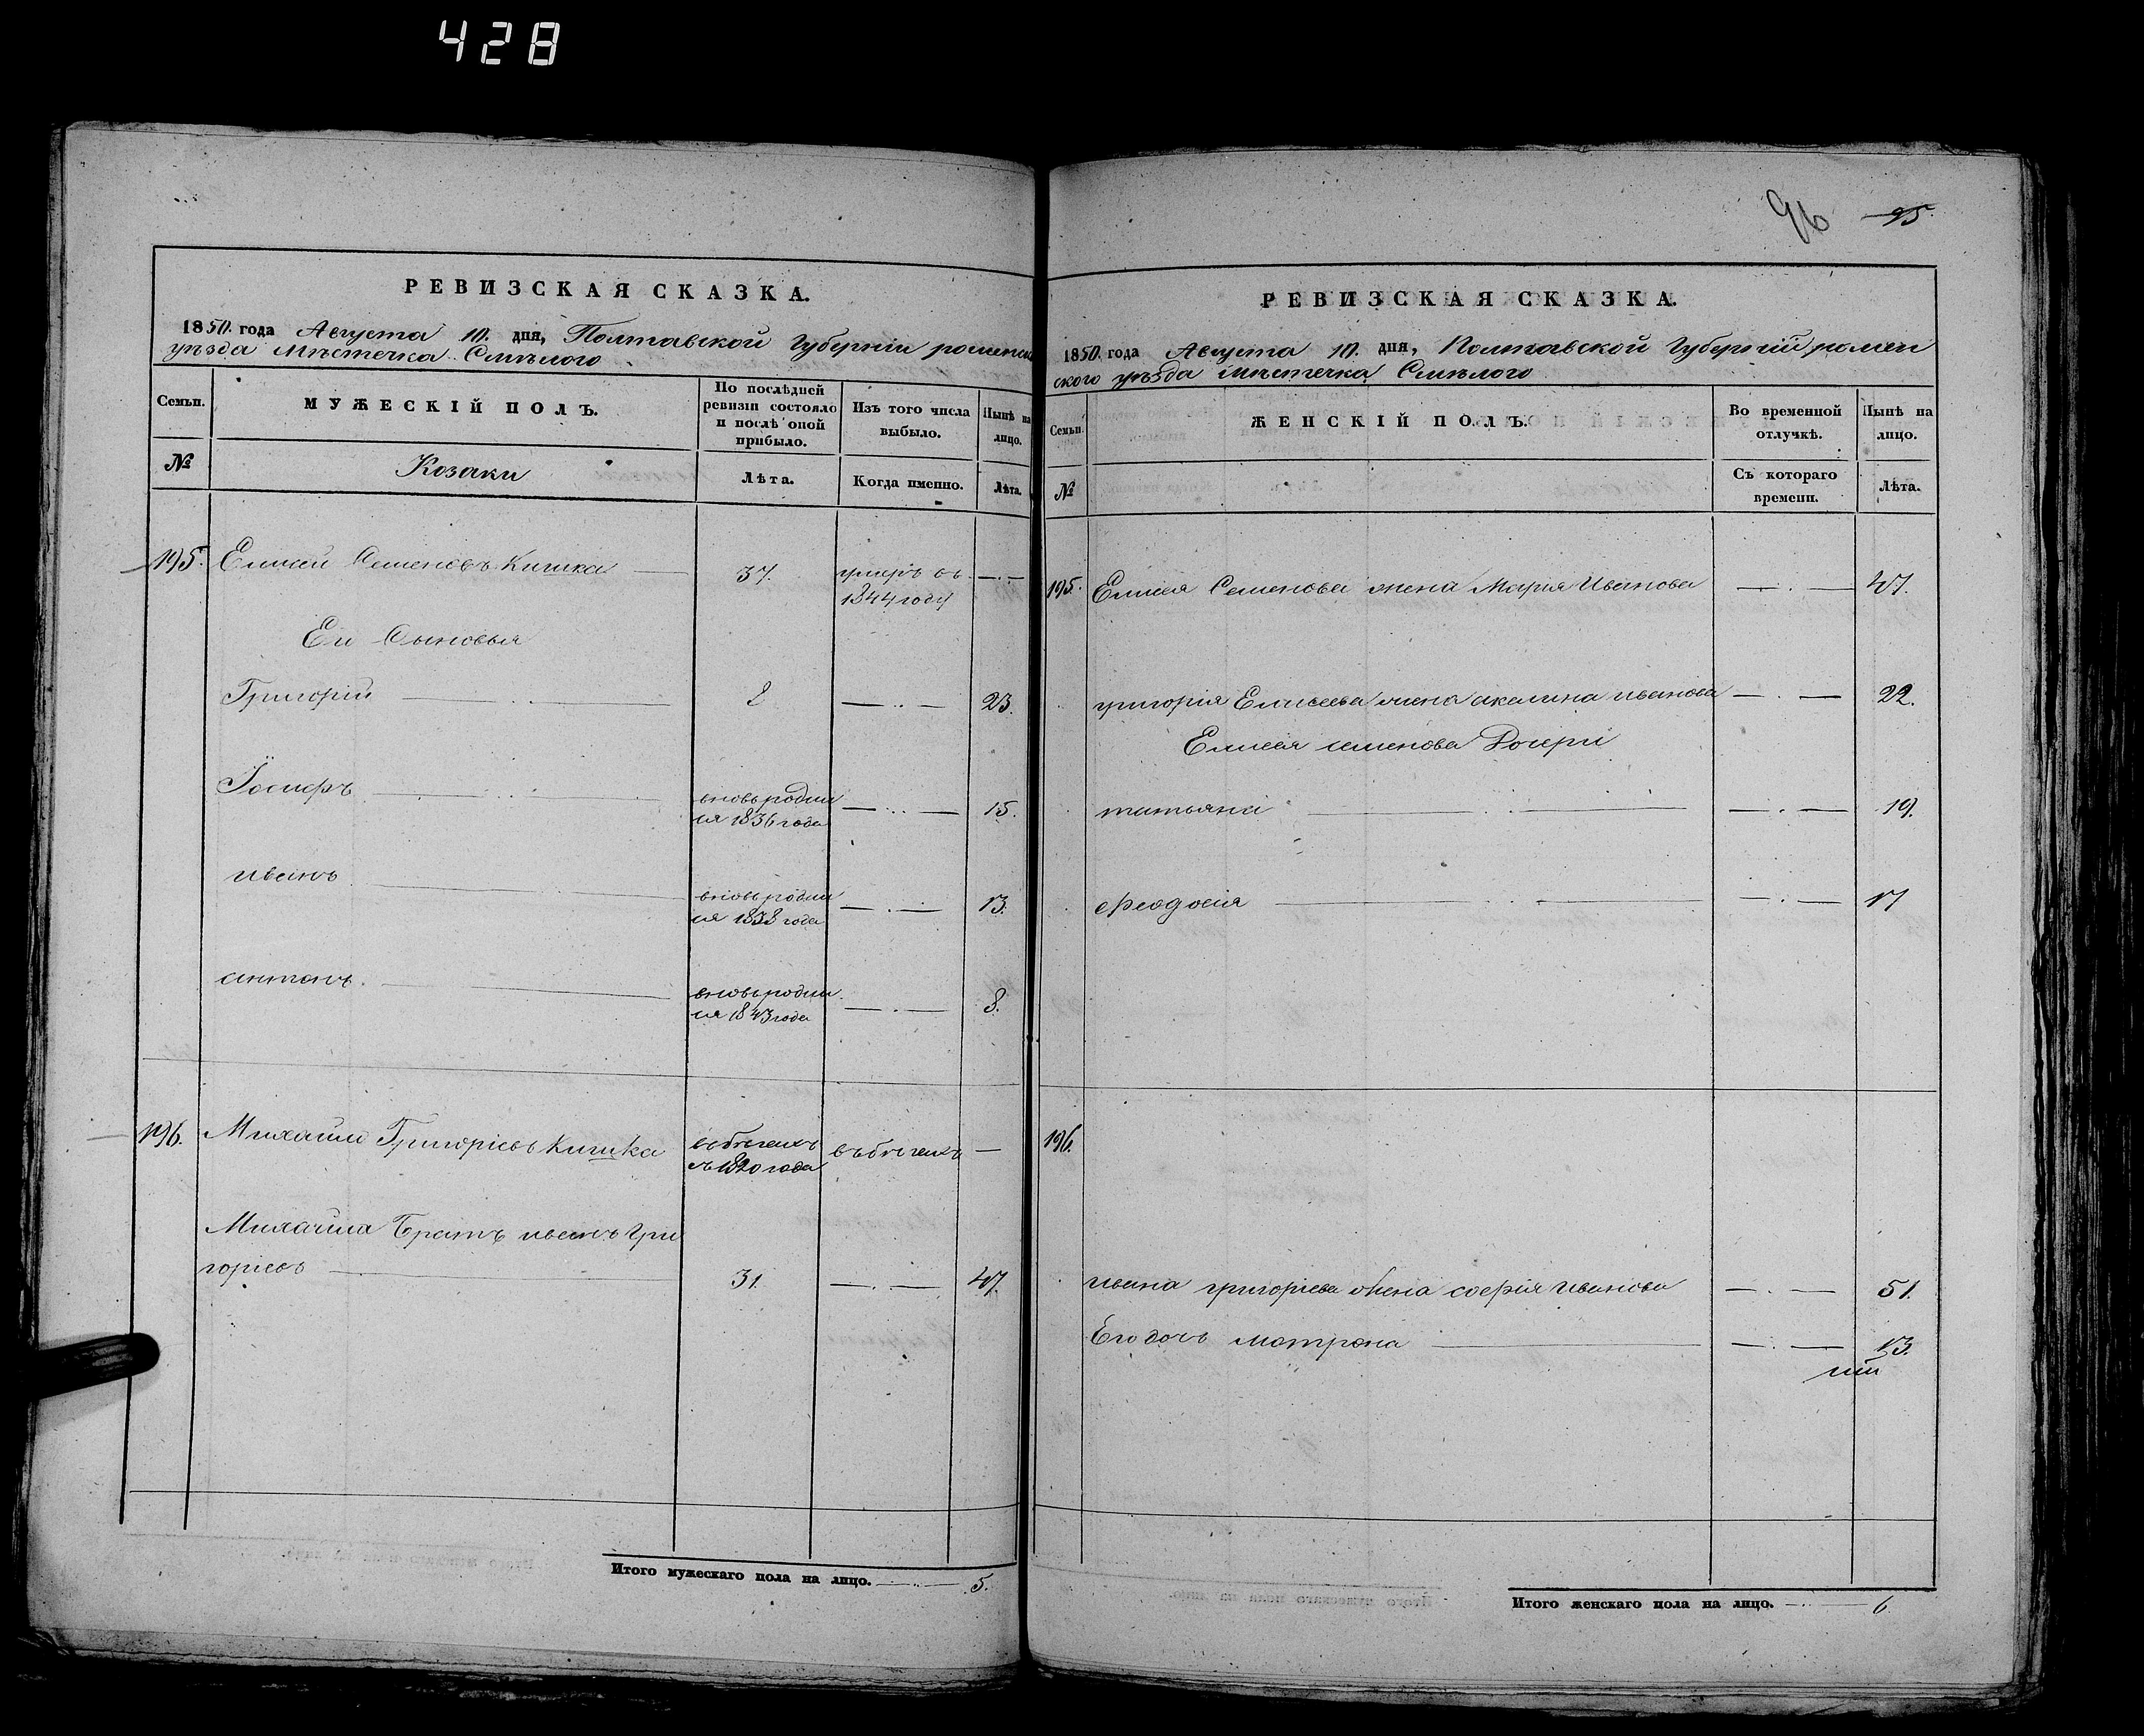 428
РЕВИЗСКАЯ СКАЗКА.
1850. года Августа 10. дня, Полтавской Губерніи роменск
уѣзда Мѣстечка Смѣлого
Семьи.
МУЖЕСКІЙ ПОЛЪ.
По послѣдней
ревизіи состояло
и послѣ оной
прибыло.
Изъ того числа
выбыло.
Нынѣ на
лицо.
№
Козаки
Лѣта.
Когда именно.
Лѣта.
195. Елисей Семеновъ Кишка 37. умеръ въ
1844 году
Ем Сыновья
Григорій 2 23.
Іосифъ вновь родил
ся 1836 года 15.
иванъ вновь родил
ся 1838 года 13.
антонъ. вновь родил
ся 1843 года 8.
196. Михайло Григоріевъ Кишка въ бѣгахъ
съ 1820 года въ бѣгахъ
Михайла Братъ иванъ Гри
горіевъ 31. 47.
Итого мужескаго пола на лицо. 5.
96 95
РЕВИЗСКАЯ СКАЗКА.
1850. года Августа 10. дня, Полтавской Губерніи ромен
ского уѣзда Мѣстечка Смѣлого
Семьи.
ЖЕНСКІЙ ПОЛЪ.
Во временной
отлучкѣ.
Нынѣ на
лицо.
№
Съ котораго
времени.
Лѣта.
195. Елисея Семенова жена Марія Иванова 47.
григорія Елисеева жена акелина иванова 22.
Елисея семенова Дочери
татьяна 19.
феодосія 17
196.
ивана григоріева жена софія иванова 51.
Его дочъ мотрона 13.
Итого женскаго пола на лицо. 6.